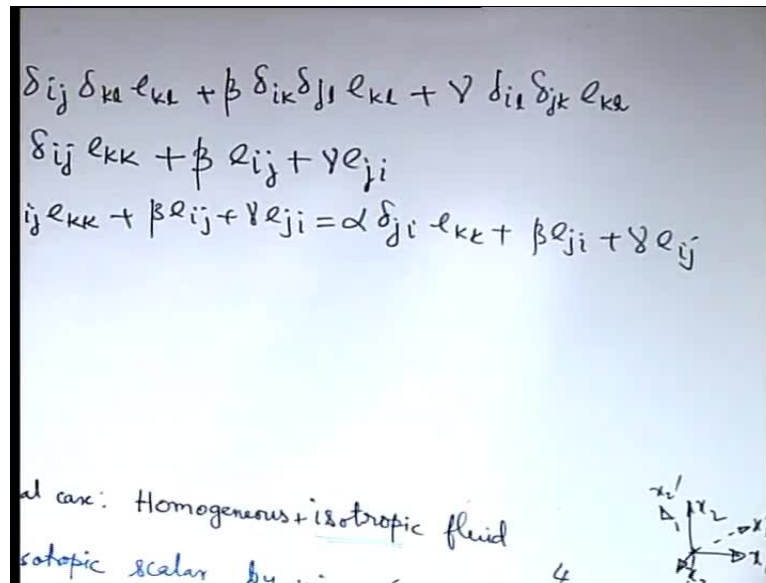 δij δkl ekl + β δik δjl ekl + γ δil δjk ekl
δij ekk + β eij + γ eji
ij ekk + β eij + γ eji = α δji ekk + β eji + γ eij
al case: Homogeneous + isotropic fluid
x2' x2
sotopic scalar by 4